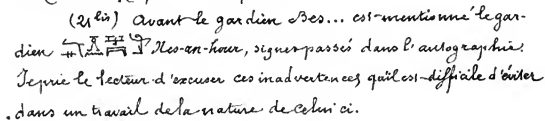 (21 bis) Avant le gardien Bes... est mentionné le gar-
dien Nes-en-hour, signes passés dans l'autographie.
Je prie le lecteur d'excuser ces inadvertences qu'il est difficile d'éviter
dans un travail de la nature de celui ci.